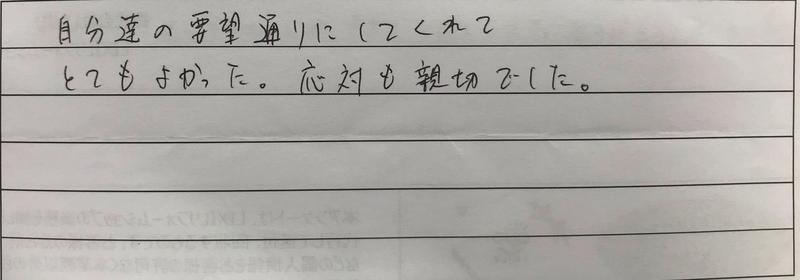 自分達の要望通りにしてくれて
とてもよかった。応対も親切でした。